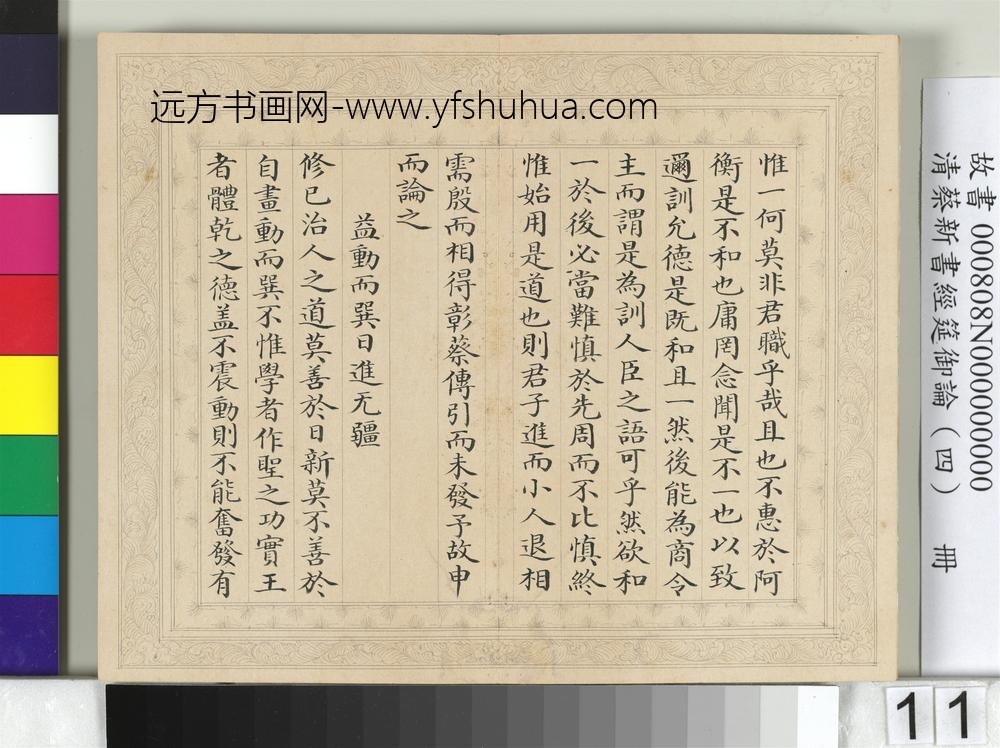 远方书画网-www.yfshuhua.com
惟一何莫非君職乎哉且也不惠於阿
衡是不和也庸罔念聞是不一也以致
邇訓允德是既和且一然後能為商令
主而謂是為訓人臣之語可乎然欲和
一於後必當難慎於先周而不比慎終
惟始用是道也則君子進而小人退相
需殷而相得彰蔡傳引而未發予故申
而論之
益動而巽日進无疆
修已治人之道莫善於日新莫不善於
自畫動而巽不惟學者作聖之功實王
者體乾之德盖不震動則不能奮發有
故書 000808N000000000
清蔡新書經筵御論（四） 冊
11